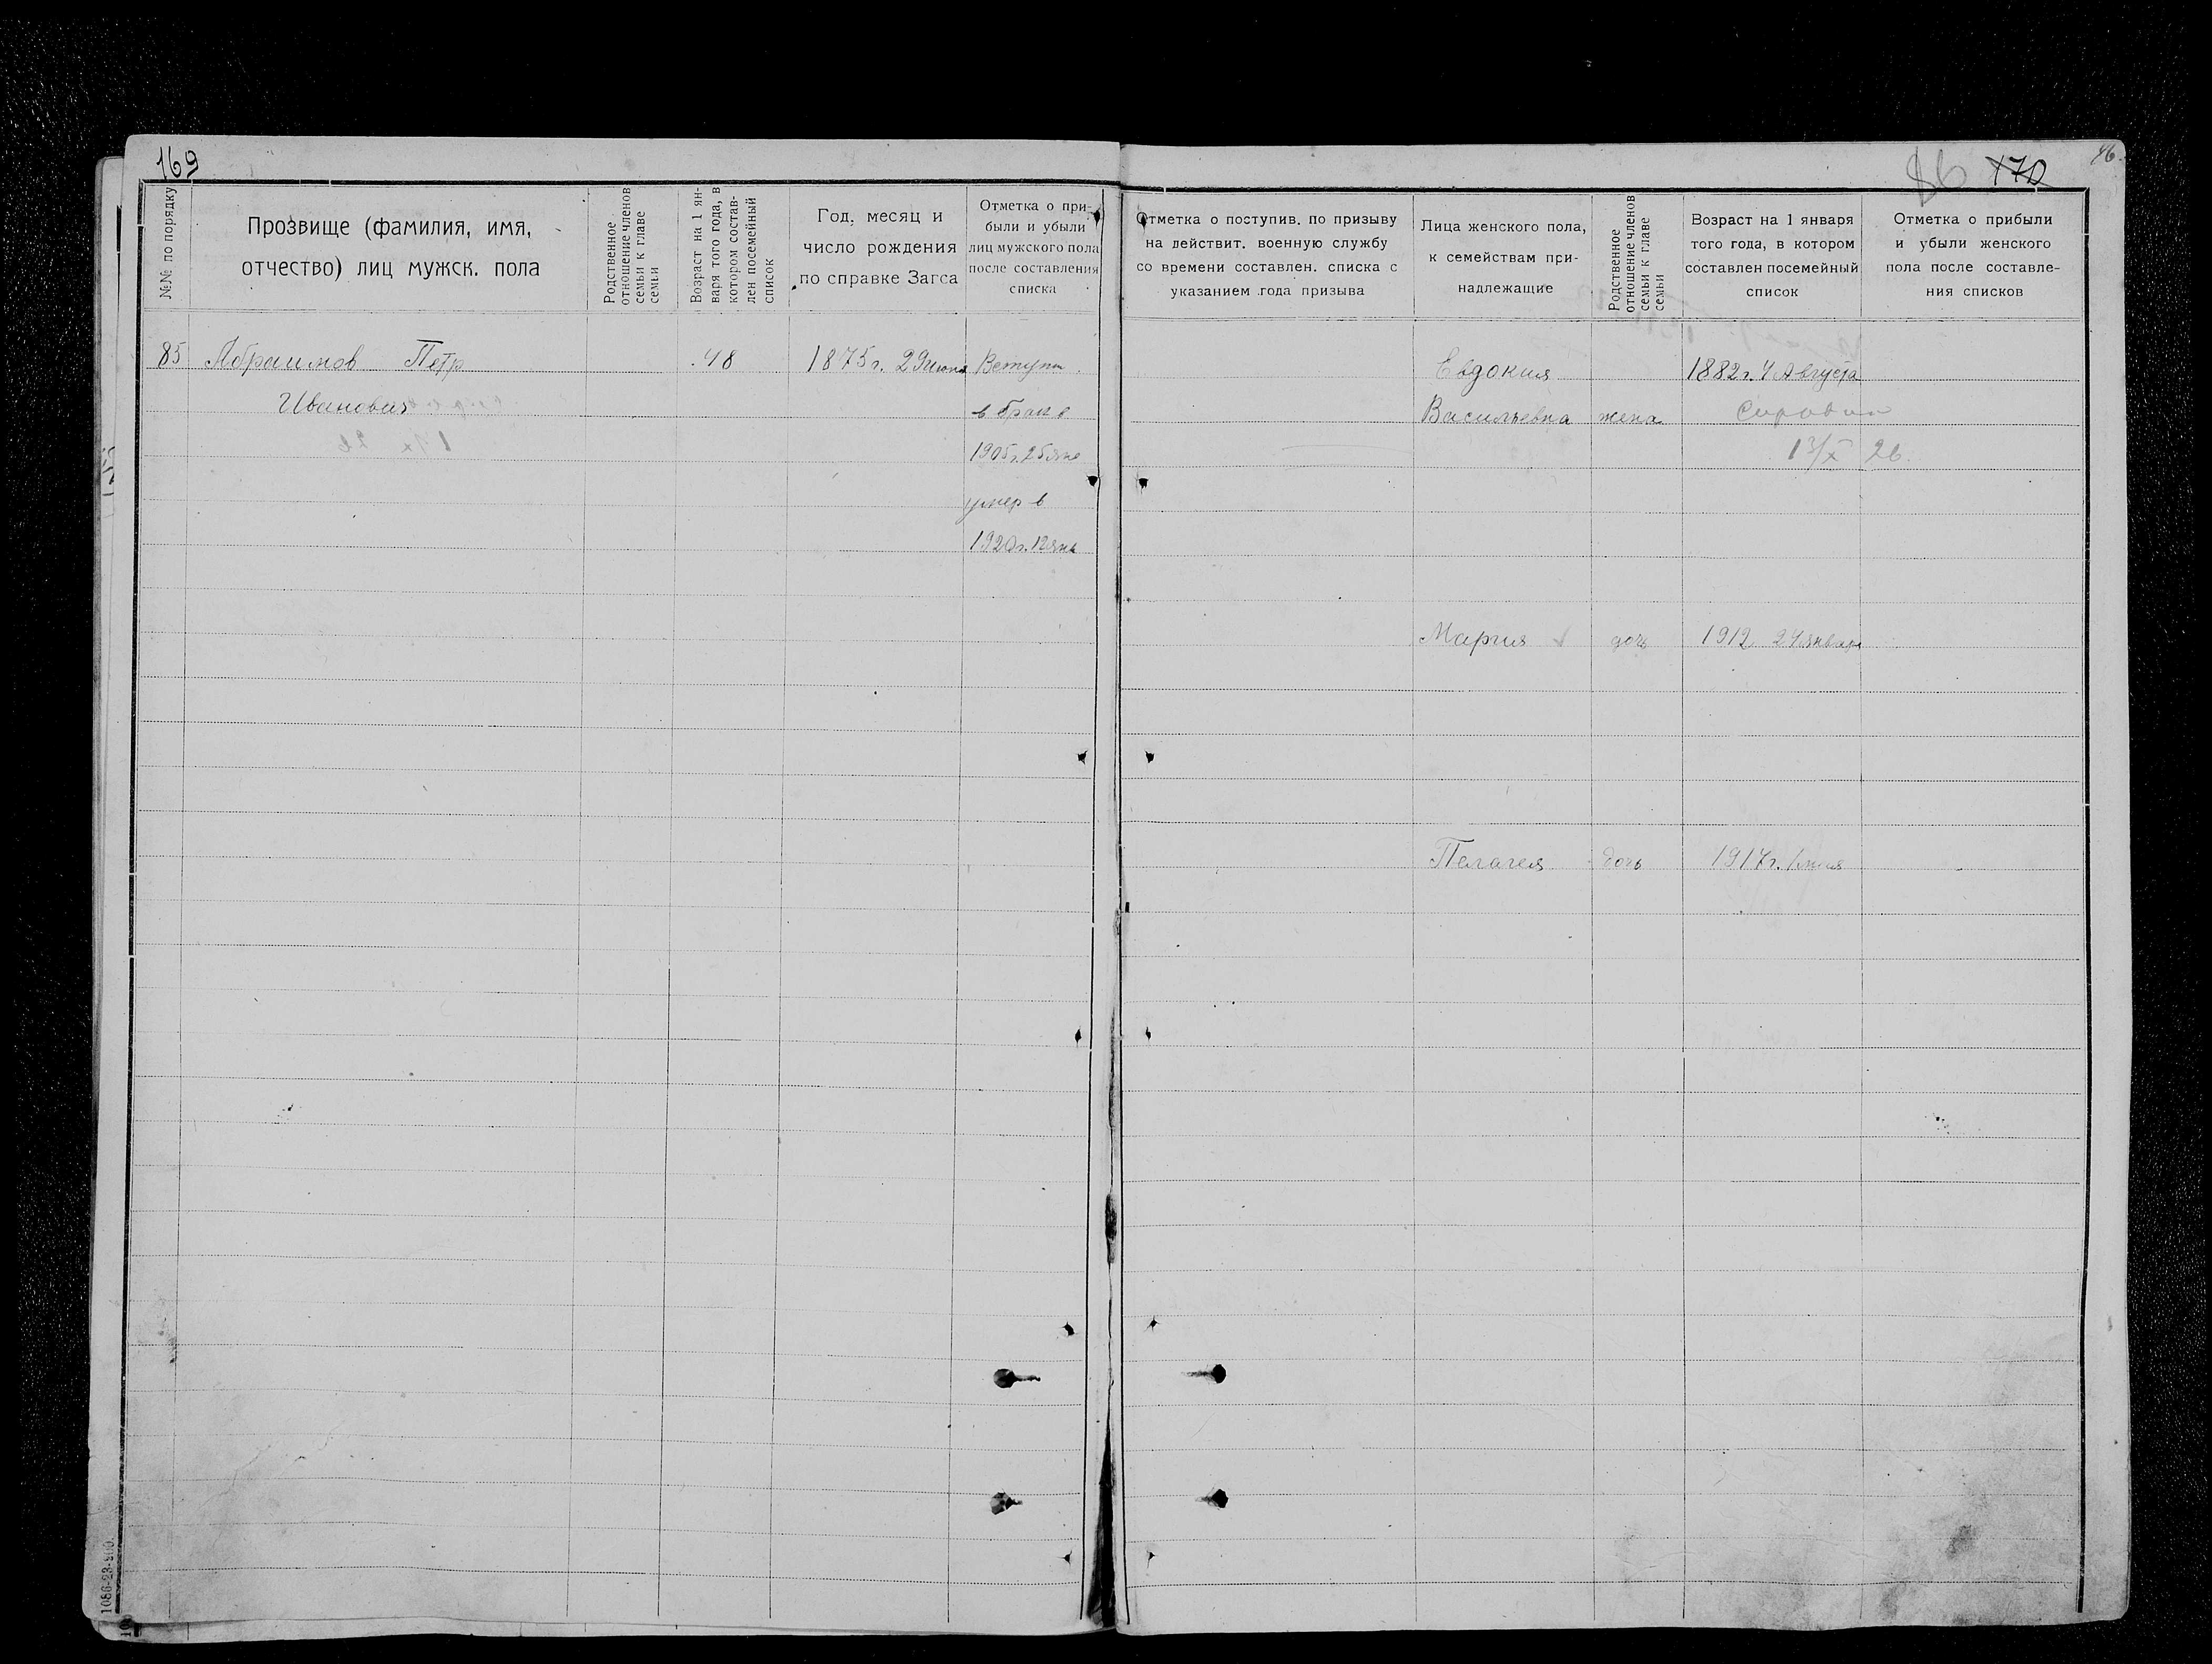 169
№№ по порядку
Прозвище (фамилия, имя,
отчество) лиц мужск. пола
Родственное
отношение членов
семьи к главе
семьи
Возраст на 1 ян-
варя того года, в
котором состав-
лен посемейный
список
Год, месяц и
число рождения
по справке Загса
Отметка о при-
были и убыли
лиц мужского пола
после составления
списка
85 Абраимов Петр 48 1875г. 29 июня Вступи
Иванович в брак в
1905г. 25 янв
умер в
1920г. 12 янв
1086-23-900.
86 170 46.
Отметка о поступив. по призыву
на действит. военную службу
со времени составлен. списка с
указанием года призыва
Лица женского пола,
к семействам при-
надлежащие
Родственное
отношение членов
семьи к главе
семьи
Возраст на 1 января
того года, в котором
составлен посемейный
список
Отметка о прибыли
и убыли женского
пола после составле-
ния списков
Евдокия 1882г. 4 Августа
Васильевна жена
13/X 26.
Мария дочь 1912 24 январ
Пелагея дочь 1917г.